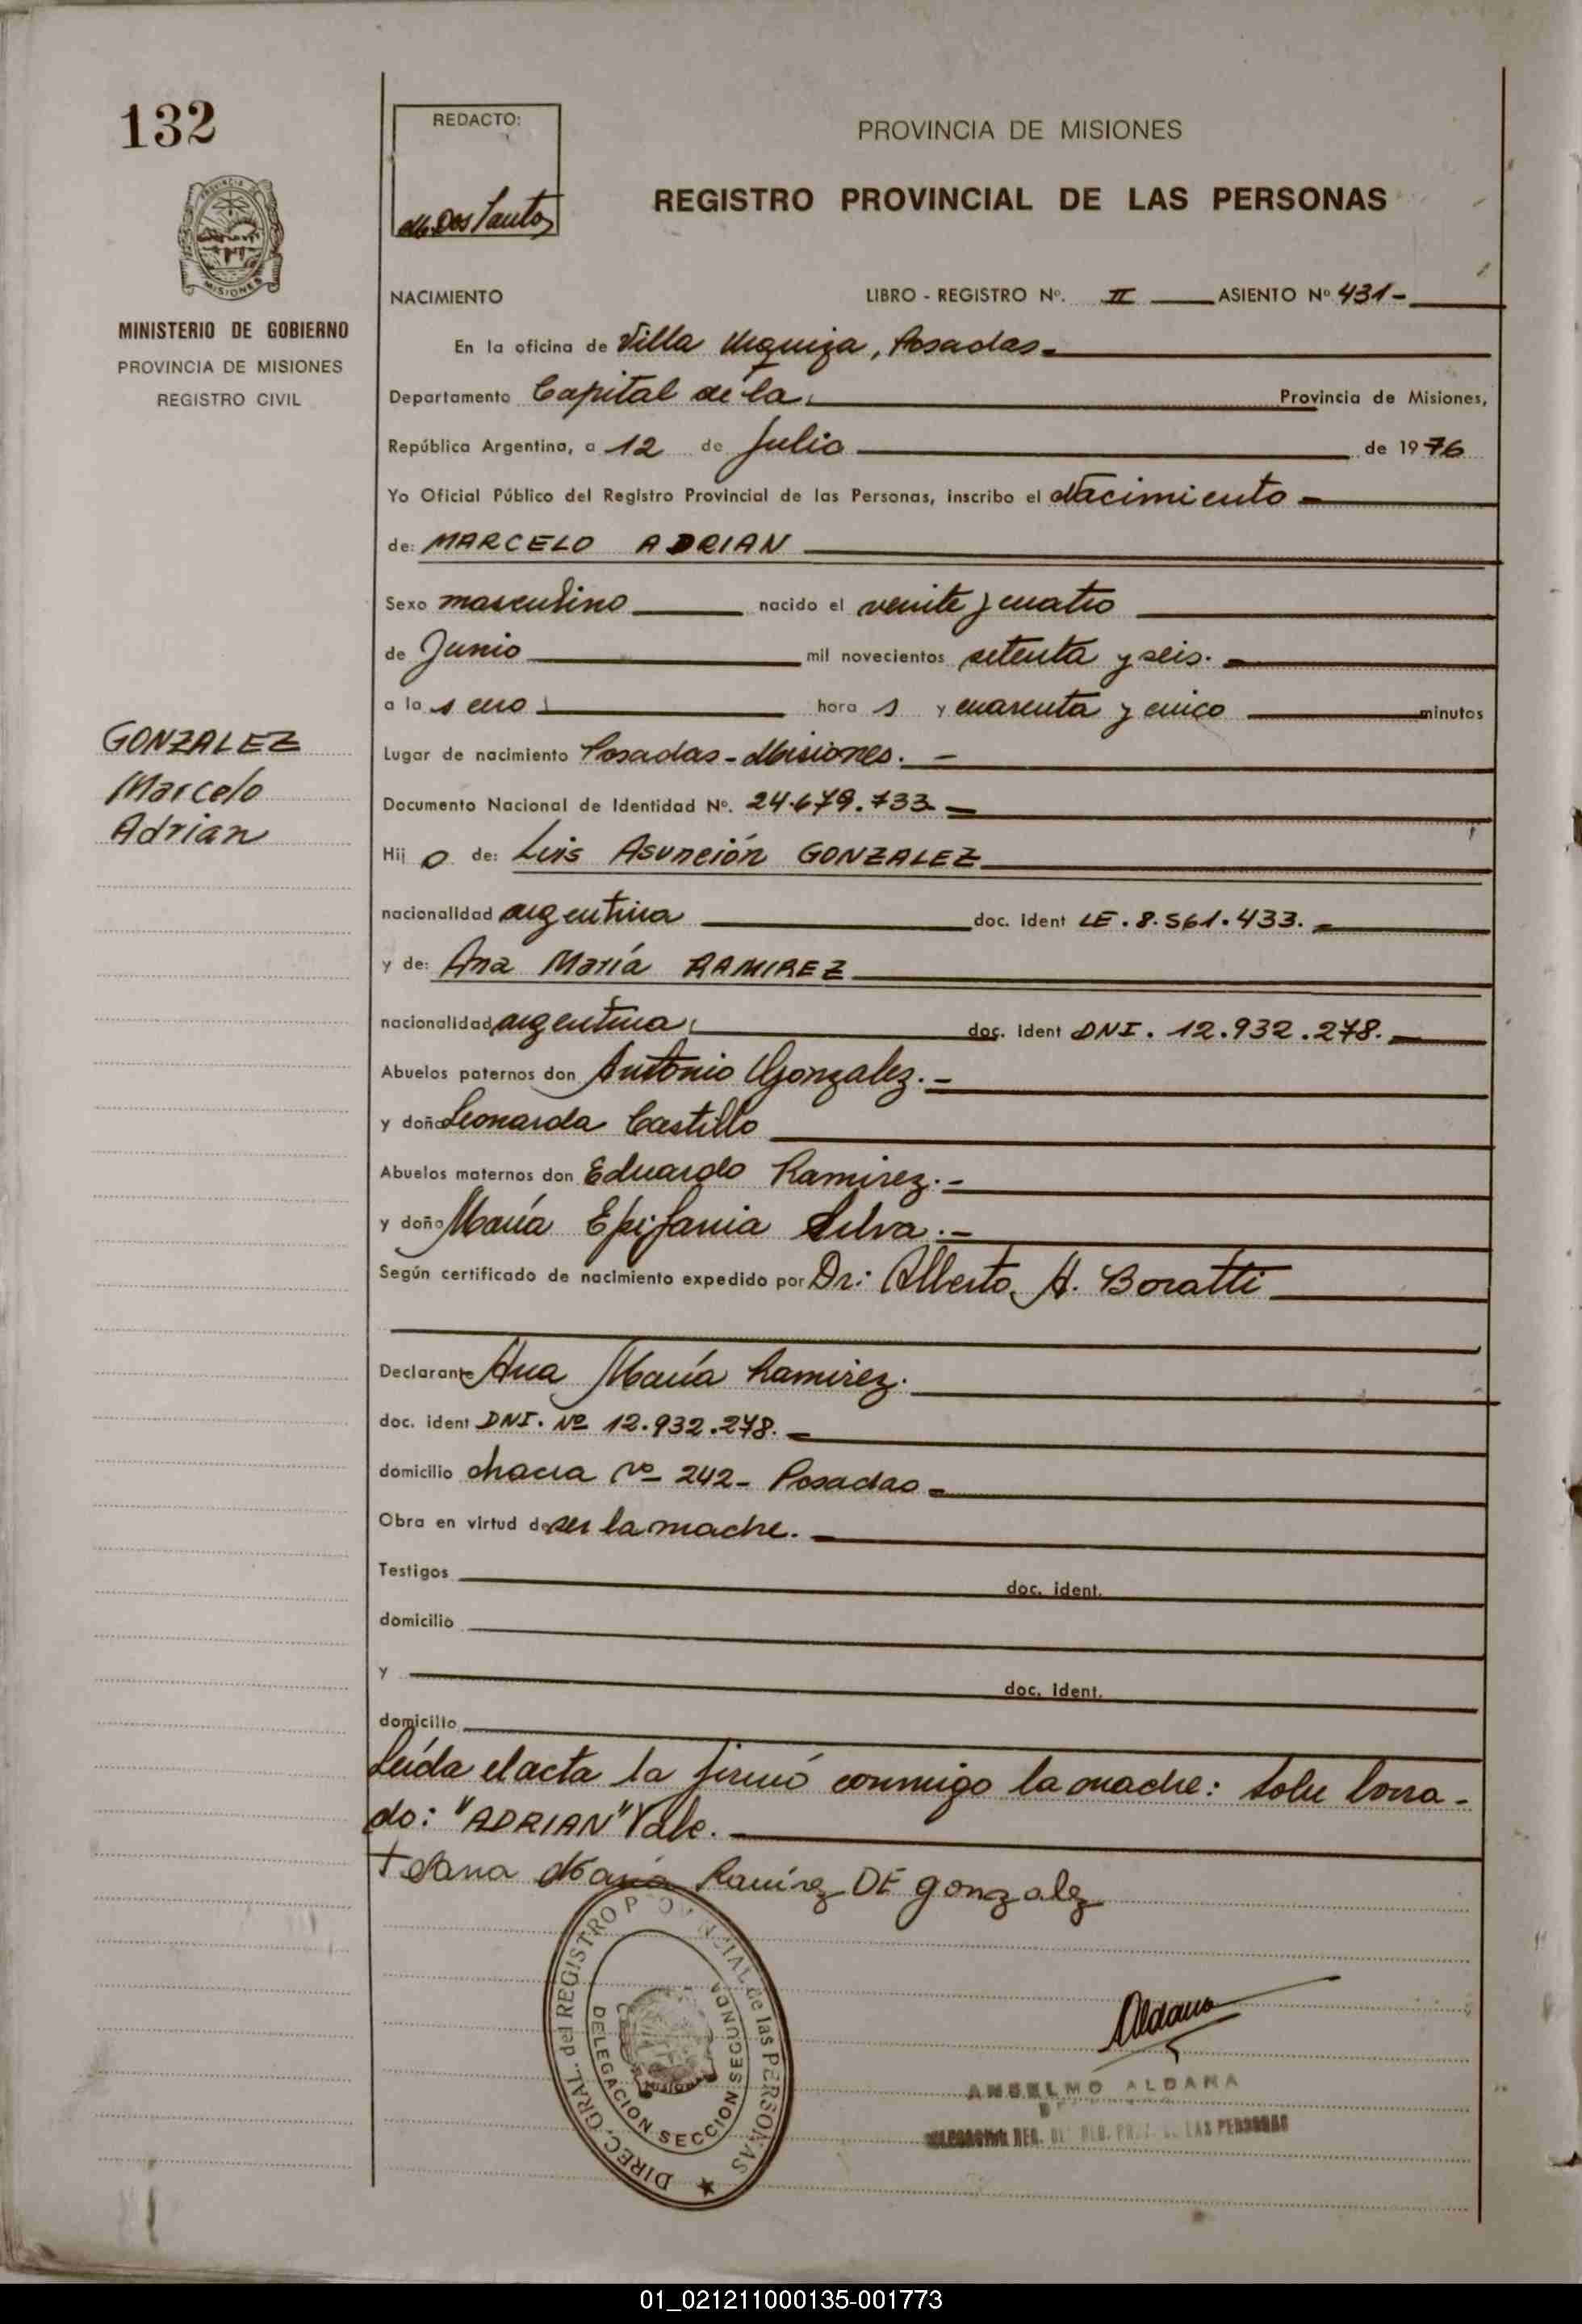 132
REDACTO:
M. Dos Santos
PROVINCIA DE MISIONES
REGISTRO PROVINCIAL DE LAS PERSONAS
MISIONES
MINISTERIO DE GOBIERNO
PROVINCIA DE MISIONES
REGISTRO CIVIL
NACIMIENTO LIBRO - REGISTRO Nº. II ASIENTO Nº 431-
En la oficina de Villa Urquiza, Posadas.
Departamento Capital de la Provincia de Misiones,
República Argentina, a 12 de Julio de 1976
Yo Oficial Público del Registro Provincial de las Personas, inscribo el Nacimiento
de: MARCELO ADRIAN
Sexo masculino nacido el veinte y cuatro
de Junio mil novecientos setenta y seis.
a la s cero hora s y cuarenta y cinco minutos
GONZALEZ
Marcelo
Adrian
Lugar de nacimiento Posadas - Misiones. -
Documento Nacional de Identidad Nº. 24.679.733
Hij o de: Luis Asunción GONZALEZ
nacionalidad argentina doc. ident LE. 8.561.433.
y de: Ana María RAMIREZ
nacionalidad argentina doc. ident DNI. 12.932.278.
Abuelos paternos don Antonio Gonzalez. -
y doña Leonarda Castillo
Abuelos maternos don Eduardo Ramirez. -
y doña María Epifania Silva. -
Según certificado de nacimiento expedido por Dr: Alberto A. Boratti
Declarante Ana María Ramirez.
doc. ident DNI. Nº 12.932.278.
domicilio chacra Nº 242- Posadas
Obra en virtud de ser la madre.
Testigos doc. ident.
domicilio
y doc. ident.
domicilio
Leída el acta la firmó conmigo la madre: Sobre borra-
do: "ADRIAN" Vale.
Ana María Ramírez DE gonzalez
DIREC. GRAL. del REGISTRO PROVINCIAL de las PERSONAS
DELEGACION SECCION SEGUNDA
MISIONES
Aldana
ANSELMO ALDANA
LAS PERSONAS
01_021211000135-001773